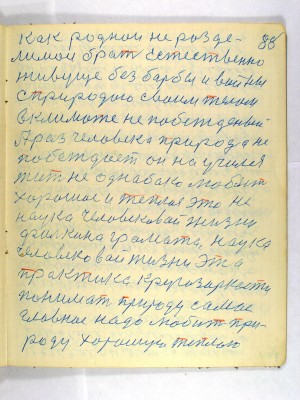 88
как родной не розде-
лимой брат Естественно
живуще без барбы и вайны
с природаю своим телом
в климоте не побежденый
А раз человека природа не
побеждает он на училса
жит не однабако любит
хорошое и теплая это не
наука человековай жизни
фалкина громата, наука
человековай жизни Эта
практика кругозаркасти
понимат природу самае
главнае надо любит при-
роду хорошую теплаю